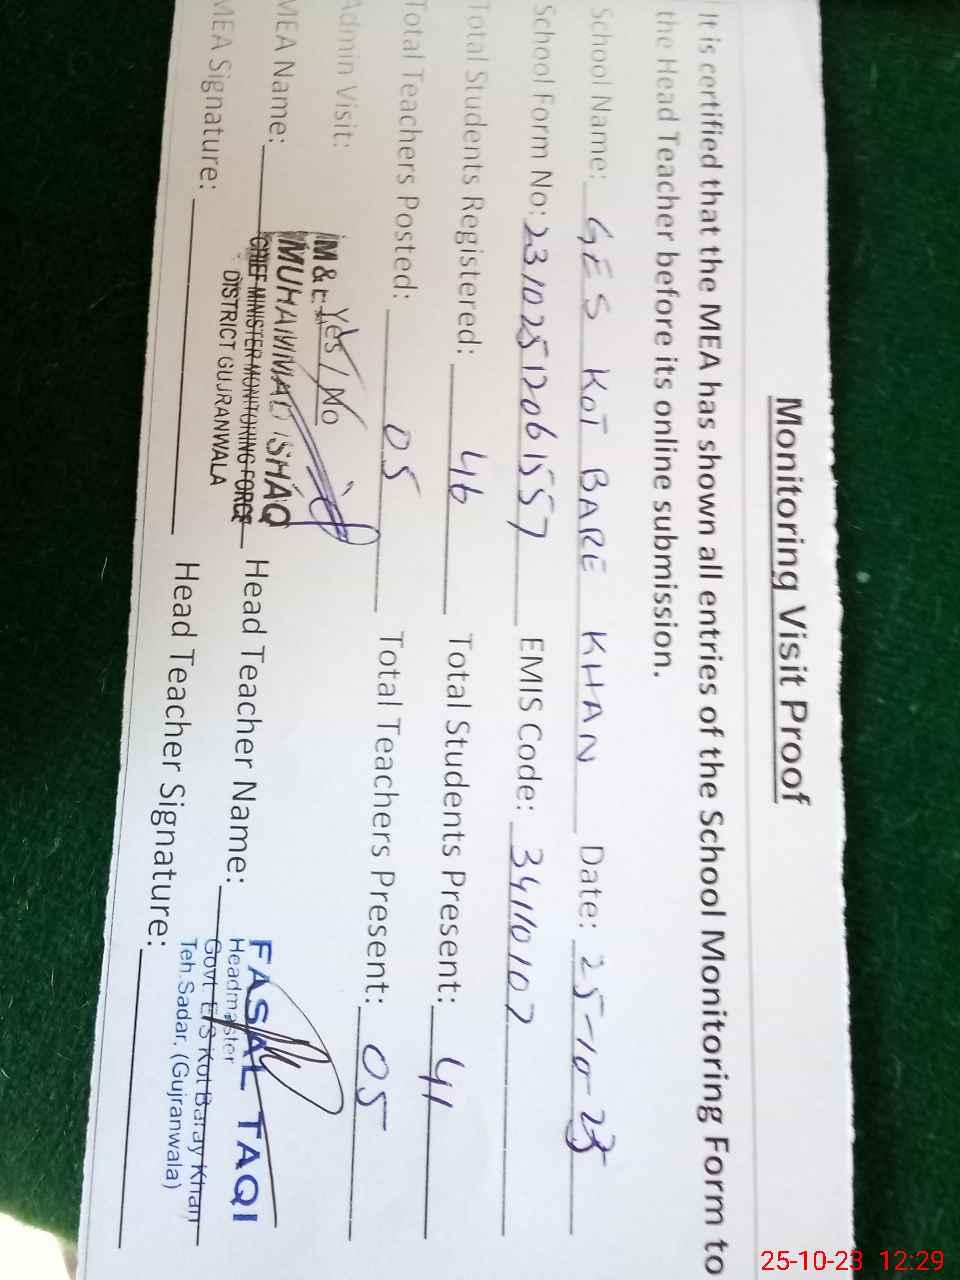 Monitoring Visit Proof
It is certified that the MEA has shown all entries of the School Monitoring Form to
the Head Teacher before its online submission.
School Name: GES KOT BARE KHAN Date: 25-10-23
School Form No: 23102512061557 EMIS Code: 34110107
Total Students Registered: 46 Total Students Present: 41
Total Teachers Posted: 05 Total Teachers Present: 05
Admin Visit: Yes / No
M & E
MEA Name: MUHAMMAD ISHAQ Head Teacher Name: FASAL TAQI
CHIEF MINISTER MONITORING FORCE Headmaster
DISTRICT GUJRANWALA Govt E/S Kot Baray Khan
Teh.Sadar, (Gujranwala)
MEA Signature: Head Teacher Signature:
25-10-23 12:29